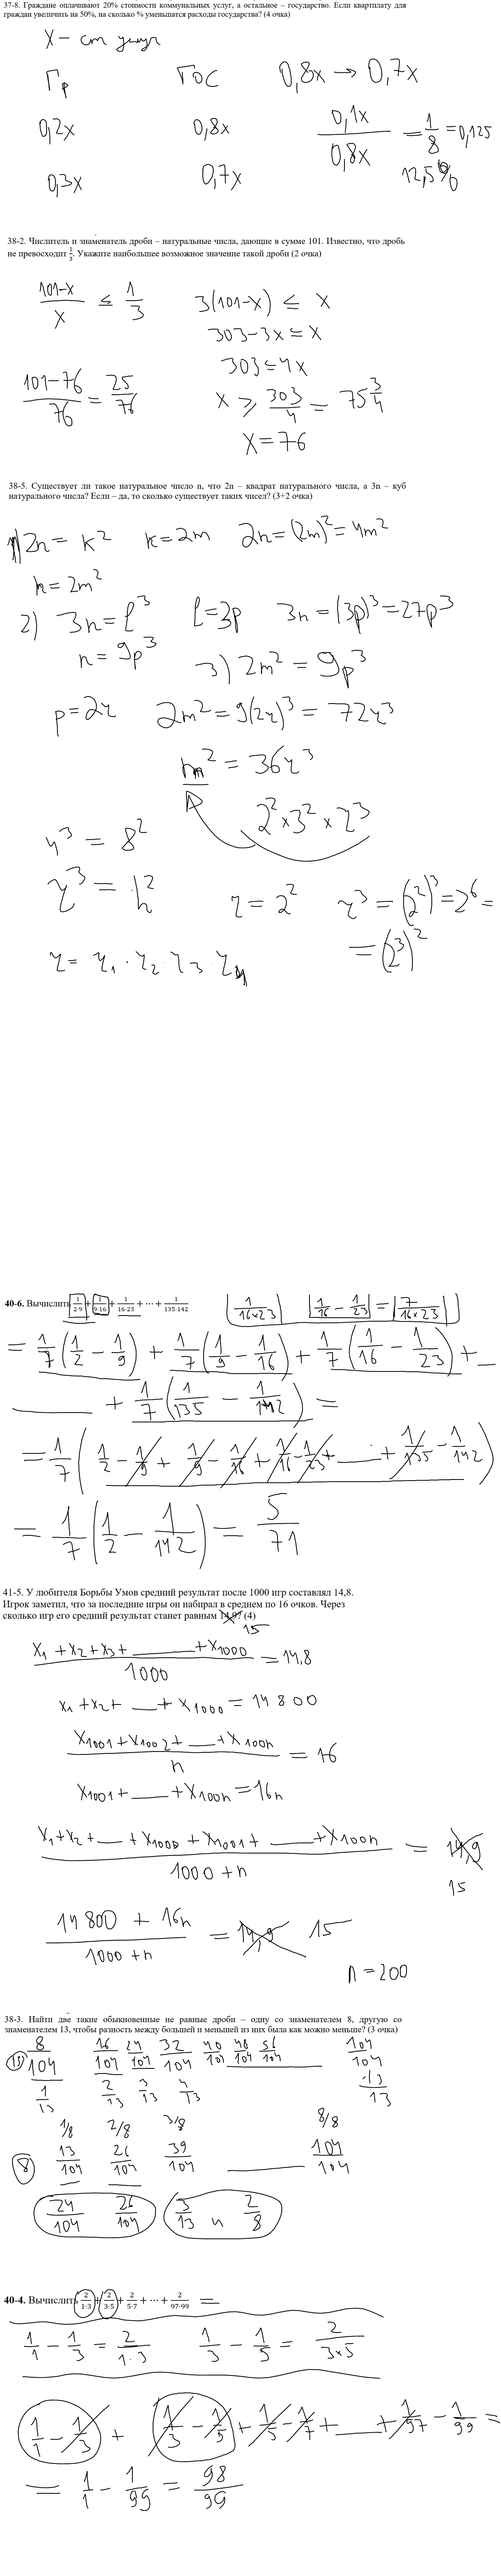 37-8. Граждане оплачивают 20% стоимости коммунальных услуг, а остальное – государство. Если квартплату для
граждан увеличить на 50%, на сколько % уменьшатся расходы государства? (4 очка)
X – ст услуг
Гр ГОС 0,8x → 0,7x
0,2x 0,8x 0,1x/0,8x = 1/8 = 0,125
0,3x 0,7x 12,5%
38-2. Числитель и знаменатель дроби – натуральные числа, дающие в сумме 101. Известно, что дробь
не превосходит 1/3. Укажите наибольшее возможное значение такой дроби (2 очка)
(101-x)/x ≤ 1/3 3(101-x) ≤ x
303-3x ≤ x
303 ≤ 4x
(101-76)/76 = 25/76 x ≥ 303/4 = 75 3/4
x = 76
38-5. Существует ли такое натуральное число n, что 2n – квадрат натурального числа, а 3n – куб
натурального числа? Если – да, то сколько существует таких чисел? (3+2 очка)
1) 2n = k² k = 2m 2n = (2m)² = 4m²
n = 2m²
2) 3n = l³ l = 3p 3n = (3p)³ = 27p³
n = 9p³ 3) 2m² = 9p³
p = 2r 2m² = 9(2r)³ = 72r³
m² = 36r³
2² × 3² × r³
4³ = 8²
r³ = h² r = 2² r³ = (2²)³ = 2⁶ =
= (2³)²
r = r₁ · r₂ · r₃ · r₄
40-6. Вычислить 1/(2·9) + 1/(9·16) + 1/(16·23) + ⋯ + 1/(135·142) |1/(16×23)| |1/16 - 1/23| = |7/(16×23)|
= 1/7 (1/2 - 1/9) + 1/7 (1/9 - 1/16) + 1/7 (1/16 - 1/23) + __
____ + 1/7 (1/135 - 1/142) =
= 1/7 (1/2 - 1/9 + 1/9 - 1/16 + 1/16 - 1/23 + __ + 1/135 - 1/142)
= 1/7 (1/2 - 1/142) = 5/71
41-5. У любителя Борьбы Умов средний результат после 1000 игр составлял 14,8.
Игрок заметил, что за последние игры он набирал в среднем по 16 очков. Через
сколько игр его средний результат станет равным 14,9? (4)
15
(x₁ + x₂ + x₃ + ____ + x₁₀₀₀)/1000 = 14,8
x₁ + x₂ + __ + x₁₀₀₀ = 14800
(x₁₀₀₁ + x₁₀₀₂ + __ + x₁₀₀n)/n = 16
x₁₀₀₁ + __ + x₁₀₀n = 16n
(x₁ + x₂ + __ + x₁₀₀₀ + x₁₀₀₁ + __ + x₁₀₀n)/(1000 + n) = 14,9
15
(14800 + 16n)/(1000 + n) = 14,9 15
n = 200
38-3. Найти две такие обыкновенные не равные дроби – одну со знаменателем 8, другую со
знаменателем 13, чтобы разность между большей и меньшей из них была как можно меньше? (3 очка)
13 8/104 16/104 24/104 32/104 40/104 48/104 56/104 ____ 104/104
1/13 2/13 3/13 4/13 13/13
1/8 2/8 3/8 8/8
8 13/104 26/104 39/104 ____ 104/104
24/104 26/104 3/13 и 2/8
40-4. Вычислить 2/(1·3) + 2/(3·5) + 2/(5·7) + ⋯ + 2/(97·99) =
1/1 - 1/3 = 2/(1·3) 1/3 - 1/5 = 2/(3×5)
1/1 - 1/3 + 1/3 - 1/5 + 1/5 - 1/7 + __ + 1/97 - 1/99 =
= 1/1 - 1/99 = 98/99